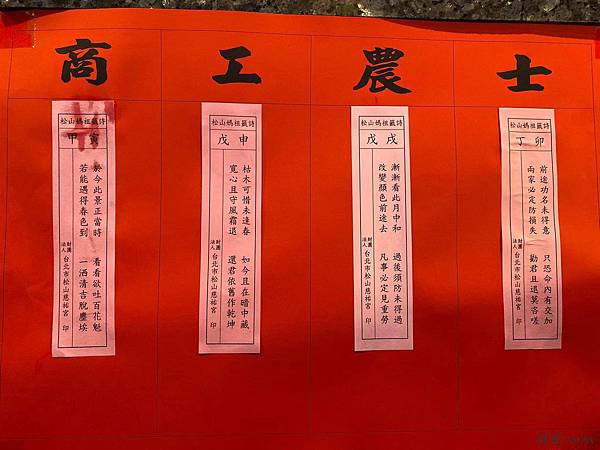 士
松山媽祖籤詩
丁卯
前途功名未得意 只恐命內有交加
兩家必定防損失 勸君且退莫咨嗟
財團法人 台北市松山慈祐宮 印
農
松山媽祖籤詩
戊戌
漸漸看此月中和 過後須防未得過
改變顏色前途去 凡事必定見重勞
財團法人 台北市松山慈祐宮 印
工
松山媽祖籤詩
戊申
枯木可惜未逢春 如今且在暗中藏
寬心且守風霜退 還君依舊作乾坤
財團法人 台北市松山慈祐宮 印
商
松山媽祖籤詩
甲寅
於今此景正當時 看看欲吐百花魁
若能遇得春色到 一洒清吉脫塵埃
財團法人 台北市松山慈祐宮 印